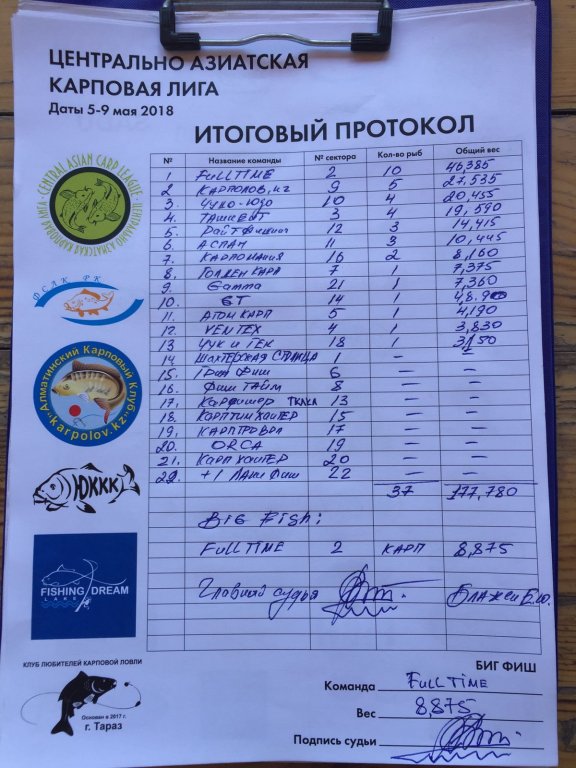 ЦЕНТРАЛЬНО АЗИАТСКАЯ
КАРПОВАЯ ЛИГА
Даты 5-9 мая 2018
ИТОГОВЫЙ ПРОТОКОЛ
CENTRAL ASIAN CARP LEAGUE
ЦЕНТРАЛЬНО АЗИАТСКАЯ КАРПОВАЯ ЛИГА
№ Название команды № сектора Кол-во рыб Общий вес
1 FULLTIME 2 10 46,385
2 КАРПОЛОВ.кг 9 5 27,535
3. ЧУДО-ЮДО 10 4 20,455
4. ТАШКЕНТ 3 4 19,590
5. РайтФишинг 12 3 14,415
6. АСПАН 11 3 10,445
7. КАРПОМАНИЯ 16 2 8,160
8. ГОЛДЕН КАРП 7 1 7,375
9. Gamma 21 1 7,360
10. GT 14 1
11. АТОМ КАРП 5 1 4,190
12. VENTEX 4 1 3,830
13 ЧУК и ГЕК 18 1 3,150
14 ШАХТЕРСКАЯ 1 — —
15. Грин Фиш 6 — —
16. Фиш ТАЙМ 8 — —
17. Карфишер ТКЛКА 13 — —
18. КАРПТИМ ХАНТЕР 15 — —
19. 17 — —
20. ORCA 19 — —
21. КАРП ХАНТЕР 20 — —
22. +1 ЛАКИ Фиш 22 — —
37 177,780
BIG FISH:
FULLTIME 2 КАРП 8,875
Главный судья
ДСЛК РК
Алматинский Карповый Клуб
"karpolov.kz"
ЮККК
FISHING DREAM
LAKE
КЛУБ ЛЮБИТЕЛЕЙ КАРПОВОЙ ЛОВЛИ
Основан в 2017 г.
г. Тараз
БИГ ФИШ
Команда FULLTIME
Вес 8,875
Подпись судьи